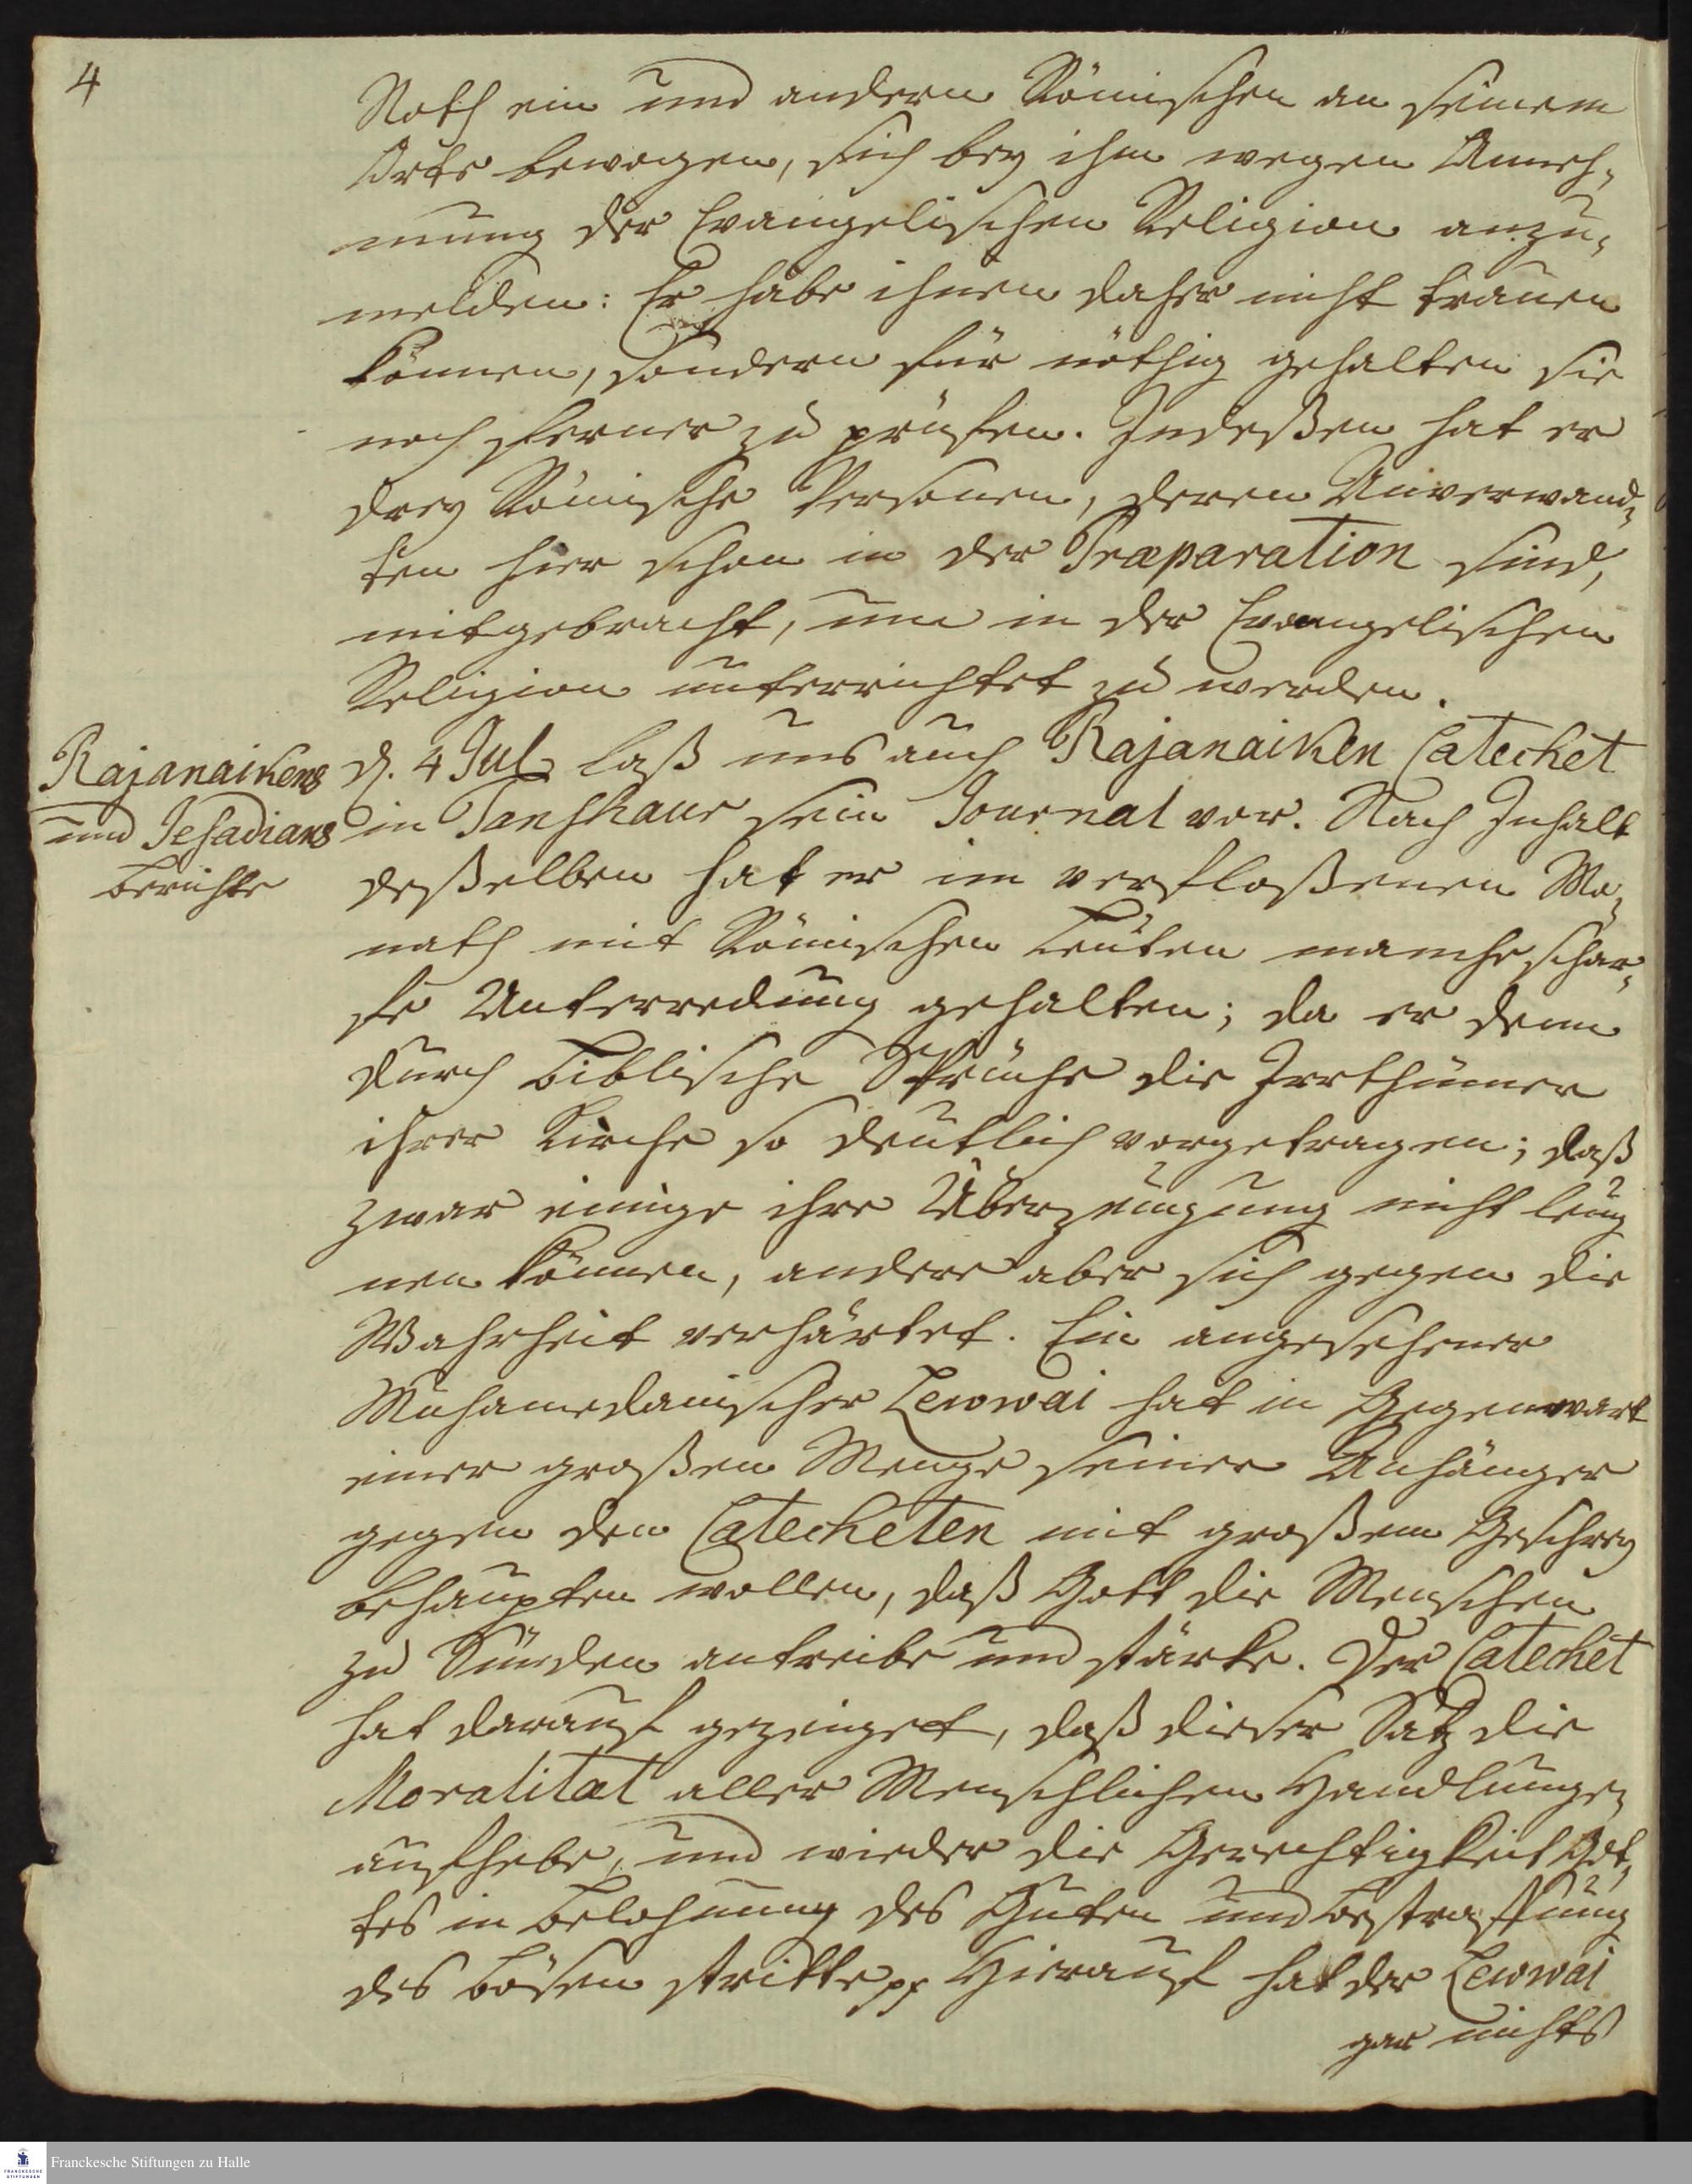 4
Noth ein und andern Römischen an seinem
Orte bewogen, sich bey ihm wegen Anneh-
mung der Evangelischen Religion anzu-
melden: Er habe ihnen daher nicht trauen
können, sondern für nöthig gehalten sie
noch ferner zu prüfen. Indeßen hat er
drey Römische Personen, deren Anverwand-
ten hier schon in der Præparation sind,
mitgebracht, um in der Evangelischen
Religion unterrichtet zu werden.
Rajanaikens
und Jesadians
Berichte
d. 4 Jul. laß uns auch Rajanaiken Catechet
in Tanshaur sein Journal vor. Nach Inhalt
deßelben hat er im verfloßenen Mo-
nath mit Römischen Leuten manche schar-
fe Unterredung gehalten; da er denn
durch Biblische Sprüche die Irrthümer
ihrer Kirche so deutlich vorgetragen; daß
zwar einige ihre Überzeugung nicht leug
nen können, andere aber sich gegen die
Wahrheit verhärtet. Ein angesehener
Muhamedanischer Lewwai hat in Gegenwart
einer großen Menge seiner Anhänger
gegen den Catecheten mit großem Geschrey
behaupten wollen, daß Gott die Menschen
zu Sünden antreibe und stärke. Der Catechet
hat darauf gezeiget, daß dieser Satz die
Moralitæt aller Menschlichen Handlungen
aufhebe, und wieder die Gerechtigkeit Got-
tes in Belohnung des Guten und Bestraffung
des Bösen stritte pp Hierauf hat der Lewwai
gar nichts
Franckesche Stiftungen zu Halle
FRANCKESCHE
STIFTUNGEN